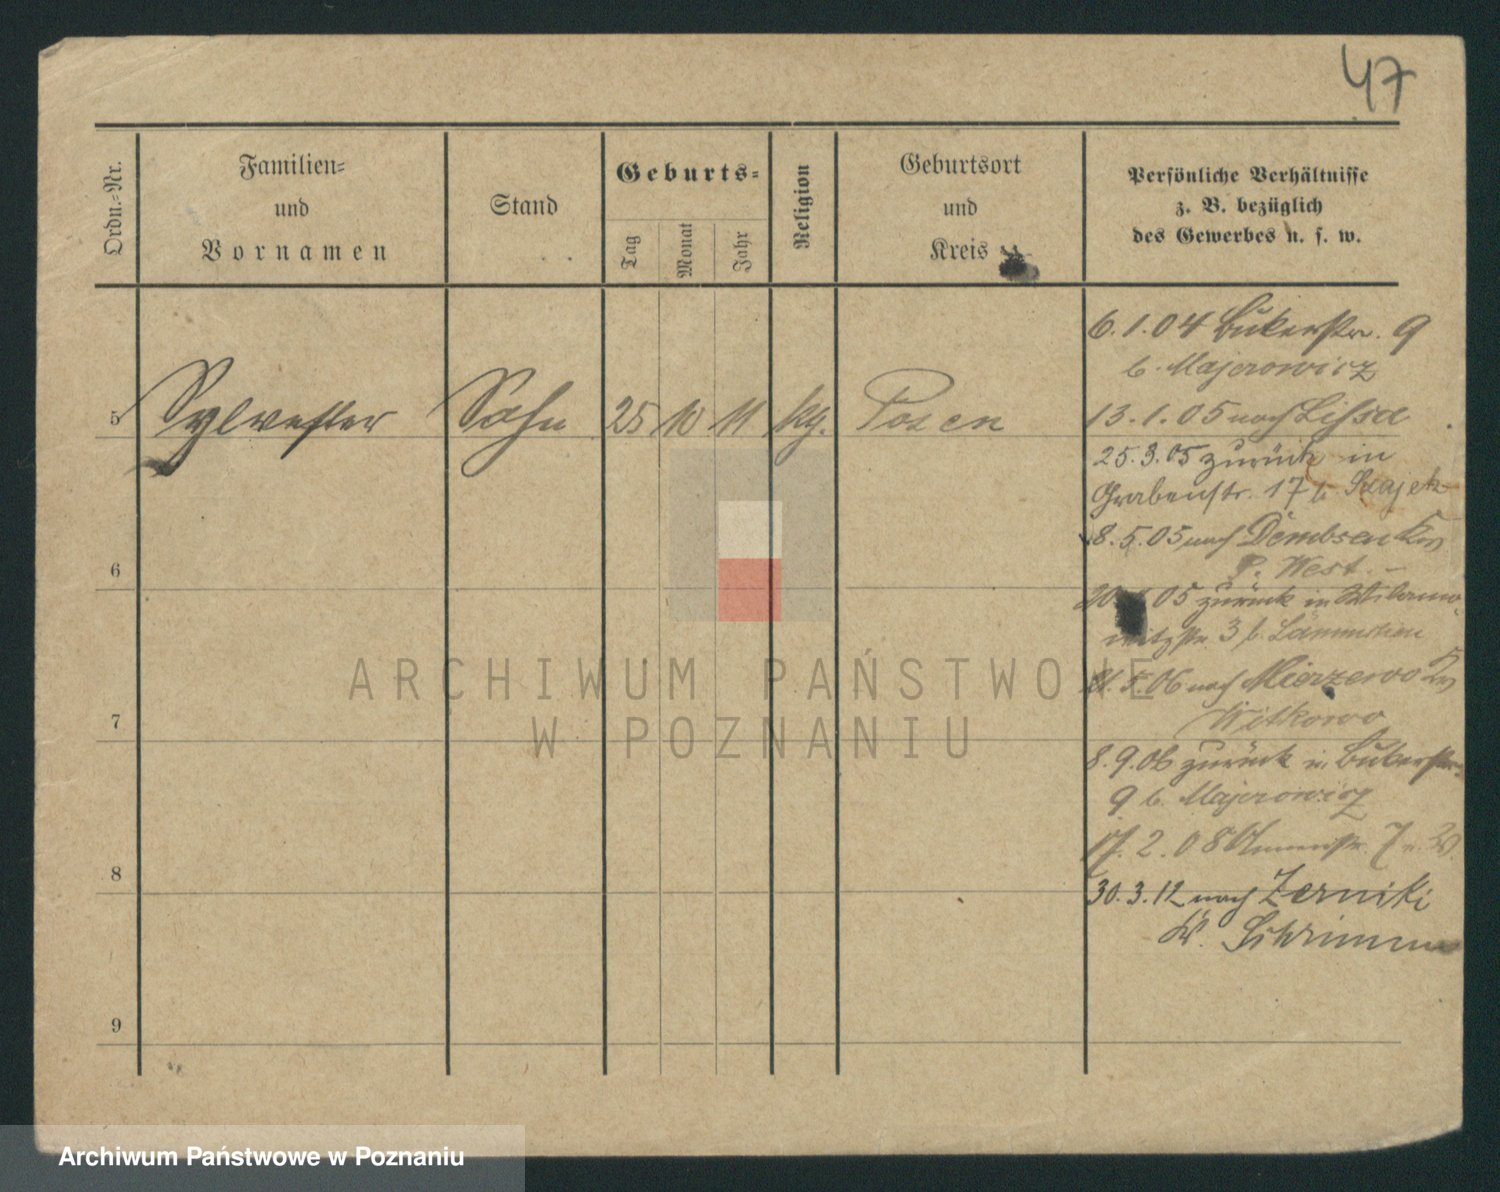 47
Ordn.-Nr.
Familien-
und
Vornamen
Stand
Geburts-
Tag
Monat
Jahr
Religion
Geburtsort
und
Kreis
Persönliche Verhältnisse
z. B. bezüglich
des Gewerbes u. s. w.
5 Sylvester Sohn 25 10 11 kth. Posen
6
7
8
9
6.1.04 Bukerstr. 9
b. Majerowicz
13.1.05 nach Lissa
25.3.05 zurück in
Grabenstr. 17 b.
8.5.05 nach Dembsen Krs
P. West
20. 05 zurück in Wilamo-
witzstr. 3 b.
5.06 nach Mierzewo Krs
Witkowo
8.9.06 zurück in Bukerstr.
9 b. Majerowicz
17.2.08 7
30.3.12 nach Zerniki
Kr. Schrimm
ARCHIWUM PAŃSTWOWE
W POZNANIU
Archiwum Państwowe w Poznaniu